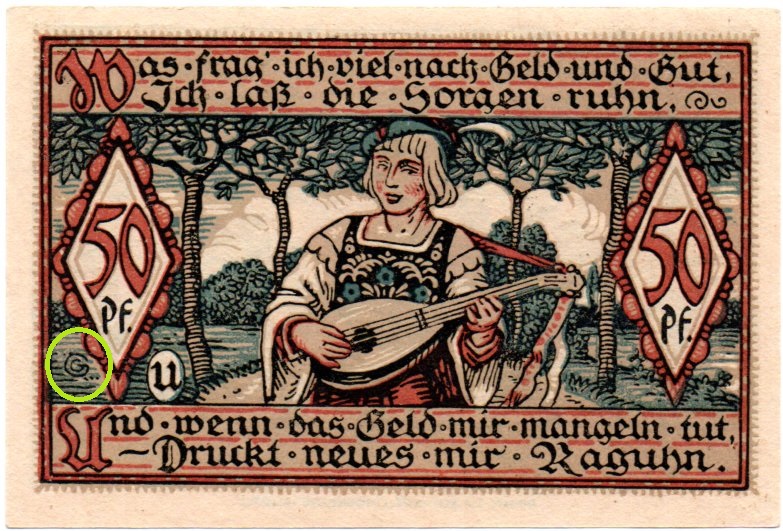 Was·frag'·ich·viel·nach·Geld·und·Gut,
Ich·laß·die·Sorgen·ruhn.
50
Pf.
50
Pf.
G
U
Und·wenn·das·Geld·mir·mangeln·tut,
—Druckt·neues·mir·Raguhn.